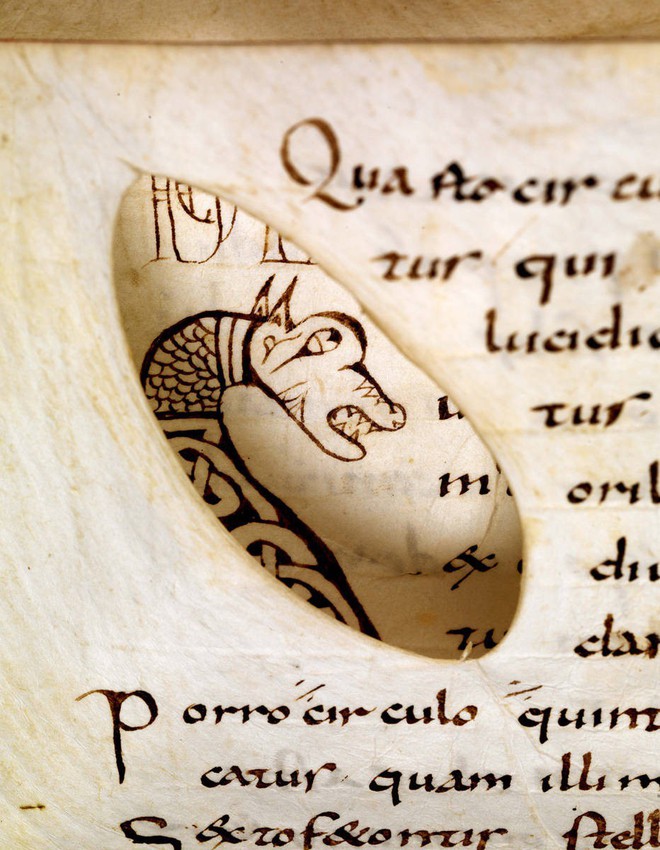 Qua sto cir cu
tur qui
lucidio
tur
m oril
& du
tu clar
Porro circulo quint
catur quam illi m
S& to f& ontir stell